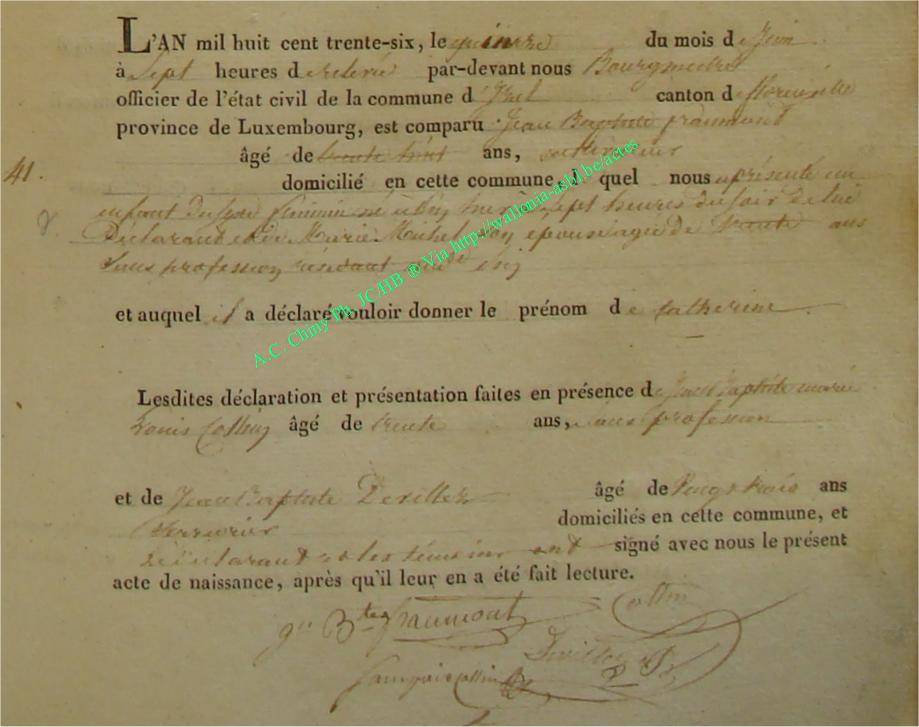 L'AN mil huit cent trente-six, le quinze du mois de Juin
à Sept heures de relevé par-devant nous Bourgmestre
officier de l'état civil de la commune d'Izel canton de florenville
province de Luxembourg, est comparu Jean Baptiste fraumont
41. âgé de trente huit ans,
domicilié en cette commune, l quel nous a présenté un
enfant du sexe féminin né hier à sept heures du soir de lui
Déclarant et de Marie Michel son épouse agée de trente ans
Sans profession résidant
et auquel il a déclaré vouloir donner le prénom de Catherine
Lesdites déclaration et présentation faites en présence de Jean Baptiste marie
Louis Collin âgé de trente ans, sans profession
et de Jean Baptiste Devillez âgé de vingt trois ans
Serrurier domiciliés en cette commune, et
déclarant et les témoins ont signé avec nous le présent
acte de naissance, après qu'il leur en a été fait lecture.
Jn Bte fraumont Collin
Devillez
Collin
A.C. Chiny Ph. JC.HB ® Via http://wallonia-asbl.be/actes